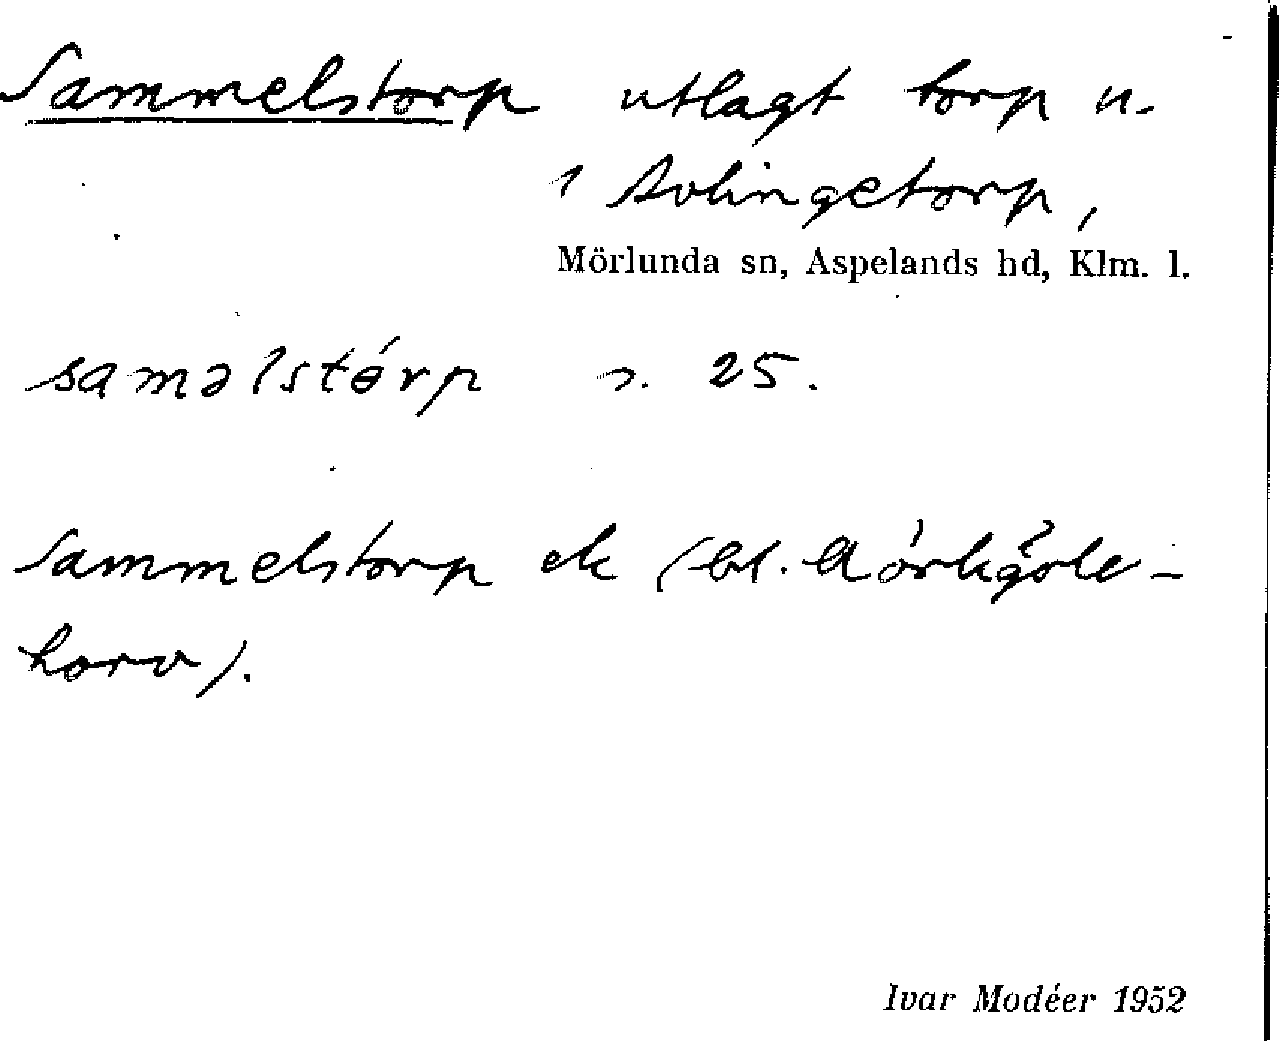 Sammelstorp utlagt torp u.
Avlingetorp,
Mörlunda sn, Aspelands hd, Klm. l.
saməlstórp s. 25.
Sammelstorp ek (bl.
horv).
Ivar Modéer 1952